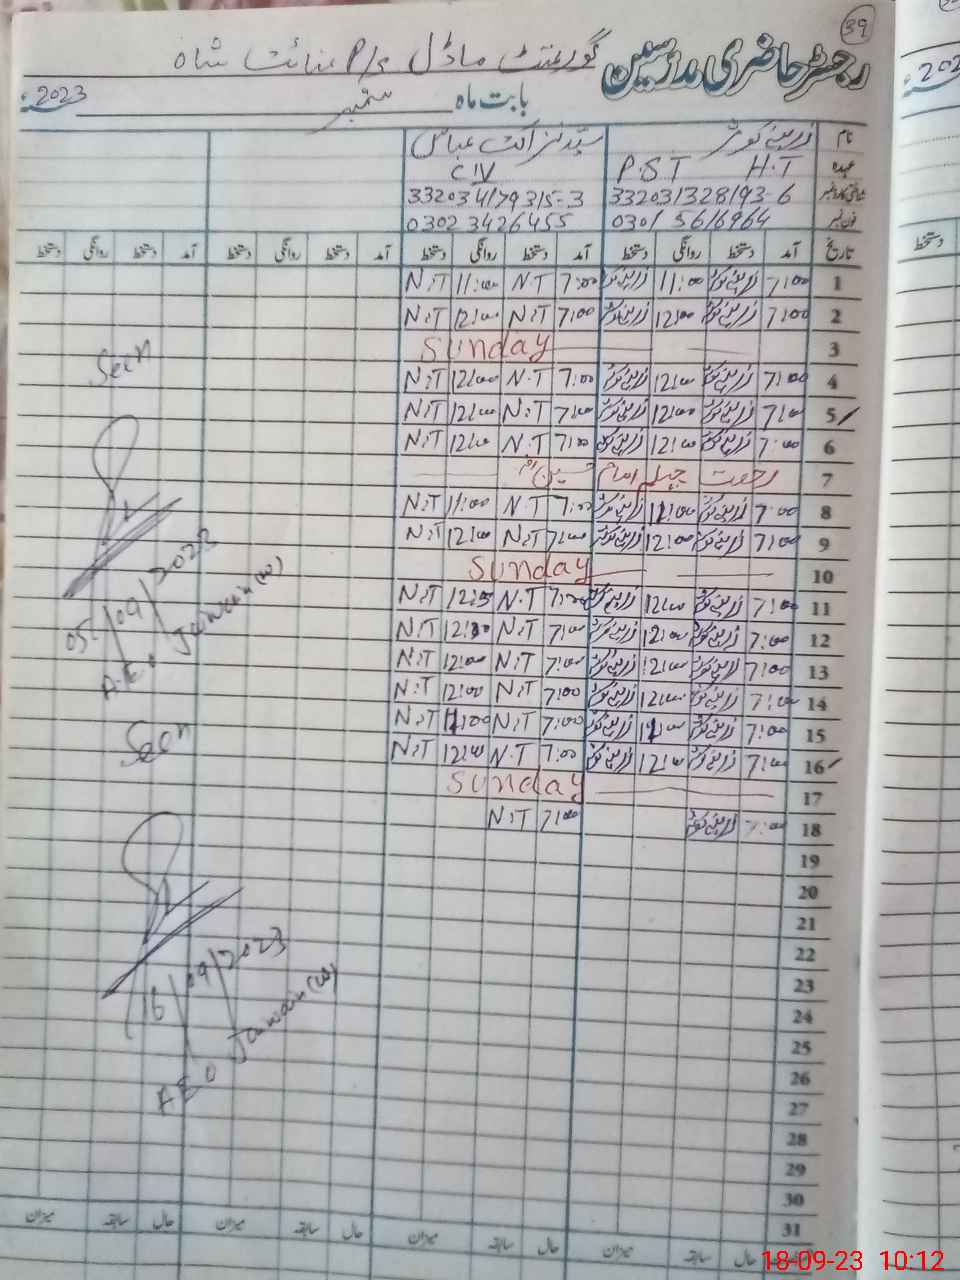 39
رجسٹر حاضری مدرسین
گورنمنٹ ماڈل P/S عنائت شاہ
بابت ماہ ستمبر 2023ء
نام زرینہ کوثر سید نزاکت عباس
عہدہ H.T P.S.T C/V
شناختی کارڈ نمبر 332031328193-6 332034179315-3
فون نمبر 0301 5616964 0302 3426455
تاریخ آمد دستخط روانگی دستخط آمد دستخط روانگی دستخط آمد دستخط روانگی دستخط آمد دستخط روانگی دستخط
1 7:00 زرینہ کوثر 11:00 زرینہ کوثر 7:00 N.T 11:00 N.T
2 7:00 زرینہ کوثر 12:00 زرینہ کوثر 7:00 N.T 12:00 N.T
3 Sunday
4 7:00 زرینہ کوثر 12:00 زرینہ کوثر 7:00 N.T 12:00 N.T
5 7:00 زرینہ کوثر 12:00 زرینہ کوثر 7:00 N.T 12:00 N.T
6 7:00 زرینہ کوثر 12:00 زرینہ کوثر 7:00 N.T 12:00 N.T
7 رخصت چہلم امام حسین
8 7:00 زرینہ کوثر 11:00 زرینہ کوثر 7:00 N.T 11:00 N.T
9 7:00 زرینہ کوثر 12:00 زرینہ کوثر 7:00 N.T 12:00 N.T
10 Sunday
11 7:00 زرینہ کوثر 12:00 زرینہ کوثر 7:00 N.T N.T
12 7:00 زرینہ کوثر 12:00 زرینہ کوثر 7:00 N.T 12:00 N.T
13 7:00 زرینہ کوثر 12:00 زرینہ کوثر 7:00 N.T 12:00 N.T
14 7:00 زرینہ کوثر 12:00 زرینہ کوثر 7:00 N.T 12:00 N.T
15 7:00 زرینہ کوثر 11:00 زرینہ کوثر 7:00 N.T 11:00 N.T
16 7:00 زرینہ کوثر 12:00 زرینہ کوثر 7:00 N.T 12:00 N.T
17 Sunday
18 7:00 زرینہ کوثر 7:00 N.T
19
20
21
22
23
24
25
26
27
28
29
30
31
حال سابقہ میزان حال سابقہ میزان حال سابقہ میزان حال سابقہ میزان
Seen
05/09/2023
A.E.O Jaiwain (W)
Seen
16/09/2023
AEO Jaiwain (W)
202
دستخط
18-09-23 10:12